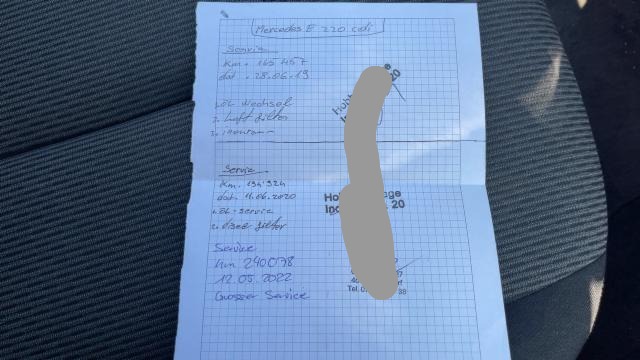 Mercedes E 220 cdi
Service
Km. 165'457
dat. 28.06.19
20
1. Öl Wechsel
2. Luft filter
3.
Service
Km. 194'324
dat. 11.06.2020
1. Öl-service
2. filter
20
Service
Km 240078
12.05.2022
Grosser Service
Tel. 38